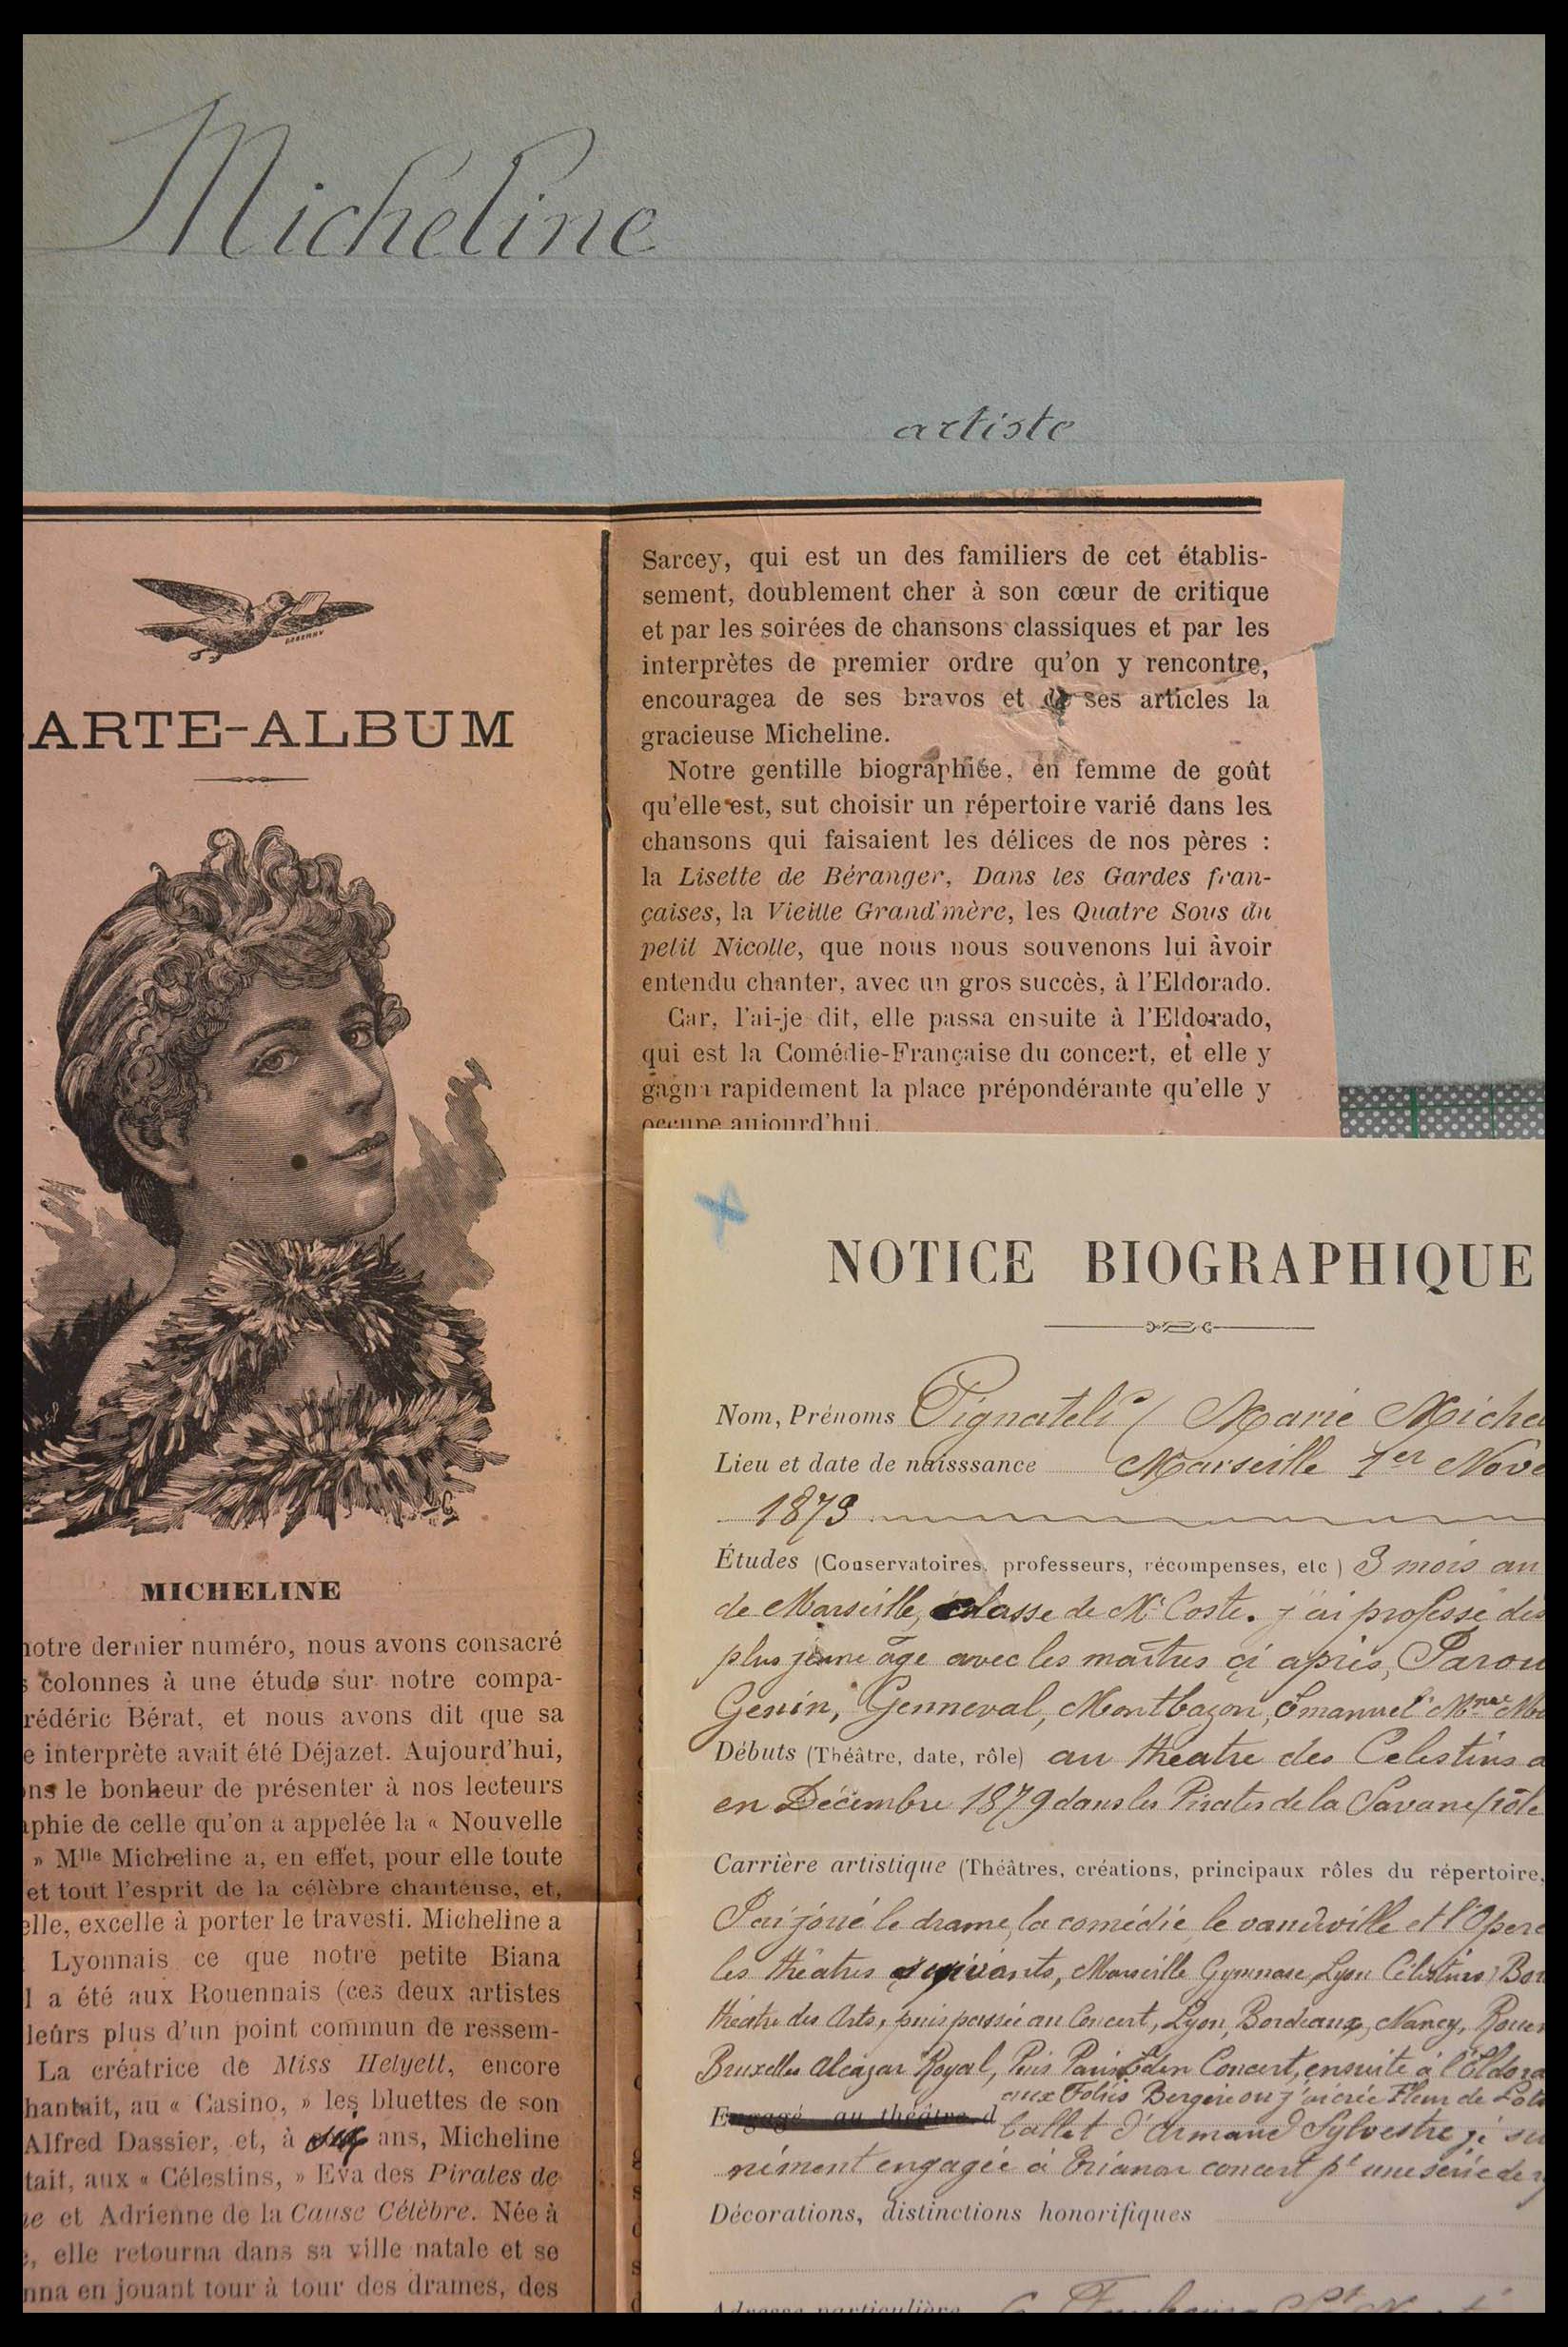 Micheline
artiste
ARTE-ALBUM
MICHELINE
notre dernier numéro, nous avons consacré
colonnes à une étude sur notre compa-
rédéric Bérat, et nous avons dit que sa
e interprète avait été Déjazet. Aujourd'hui,
ons le bonheur de présenter à nos lecteurs
aphie de celle qu'on a appelée la « Nouvelle
» Mlle Micheline a, en effet, pour elle toute
et tout l'esprit de la célèbre chanteuse, et,
elle, excelle à porter le travesti. Micheline a
Lyonnais ce que notre petite Biana
l a été aux Rouennais (ces deux artistes
leurs plus d'un point commun de ressem-
La créatrice de Miss Helyett, encore
hantait, au « Casino, » les bluettes de son
Alfred Dassier, et, à six ans, Micheline
tait, aux « Célestins, » Eva des Pirates de
ne et Adrienne de la Cause Célèbre. Née à
e, elle retourna dans sa ville natale et se
nna en jouant tour à tour des drames, des
Sarcey, qui est un des familiers de cet établis-
sement, doublement cher à son cœur de critique
et par les soirées de chansons classiques et par les
interprètes de premier ordre qu'on y rencontre,
encouragea de ses bravos et de ses articles la
gracieuse Micheline.
Notre gentille biographiée, en femme de goût
qu'elle est, sut choisir un répertoire varié dans les
chansons qui faisaient les délices de nos pères :
la Lisette de Béranger, Dans les Gardes fran-
çaises, la Vieille Grand'mère, les Quatre Sous du
petit Nicolle, que nous nous souvenons lui avoir
entendu chanter, avec un gros succès, à l'Eldorado.
Car, l'ai-je dit, elle passa ensuite à l'Eldorado,
qui est la Comédie-Française du concert, et elle y
gagna rapidement la place prépondérante qu'elle y
occupe aujourd'hui.
NOTICE BIOGRAPHIQUE
Nom, Prénoms Pignateli / Marie Miche
Lieu et date de naisssance Marseille 1er Nove
1873
Études (Conservatoires, professeurs, récompenses, etc) 3 mois au
de Marseille, classe de Mr Coste. j'ai professé dès
plus jeune âge avec les maîtres ci après, Parou
Genin, Genneval, Montbazon, Emanuel Mmes Mo
Débuts (Théâtre, date, rôle) au théatre des Celestins a
en Décembre 1879 dans les Pirates de la Savane (rôle
Carrière artistique (Théâtres, créations, principaux rôles du répertoire,
J'ai joué le drame, la comédie, le vaudeville et l'Opere
les théatres suivants, Marseille Gymnase, Lyon Célestins, Bor
théatre des Arts, puis passée au Concert, Lyon, Bordeaux, Nancy, Rouen
Bruxelles Alcazar Royal, Puis Paris Eden Concert, ensuite à l'Eldora
aux Folies Bergère ou j'ai crée Fleur de Lotu
Engagé au théâtre d ballet d'Armand Sylvestre, je su
niment engagée à Trianon concert pr une série de
Décorations, distinctions honorifiques
Adresse particulière